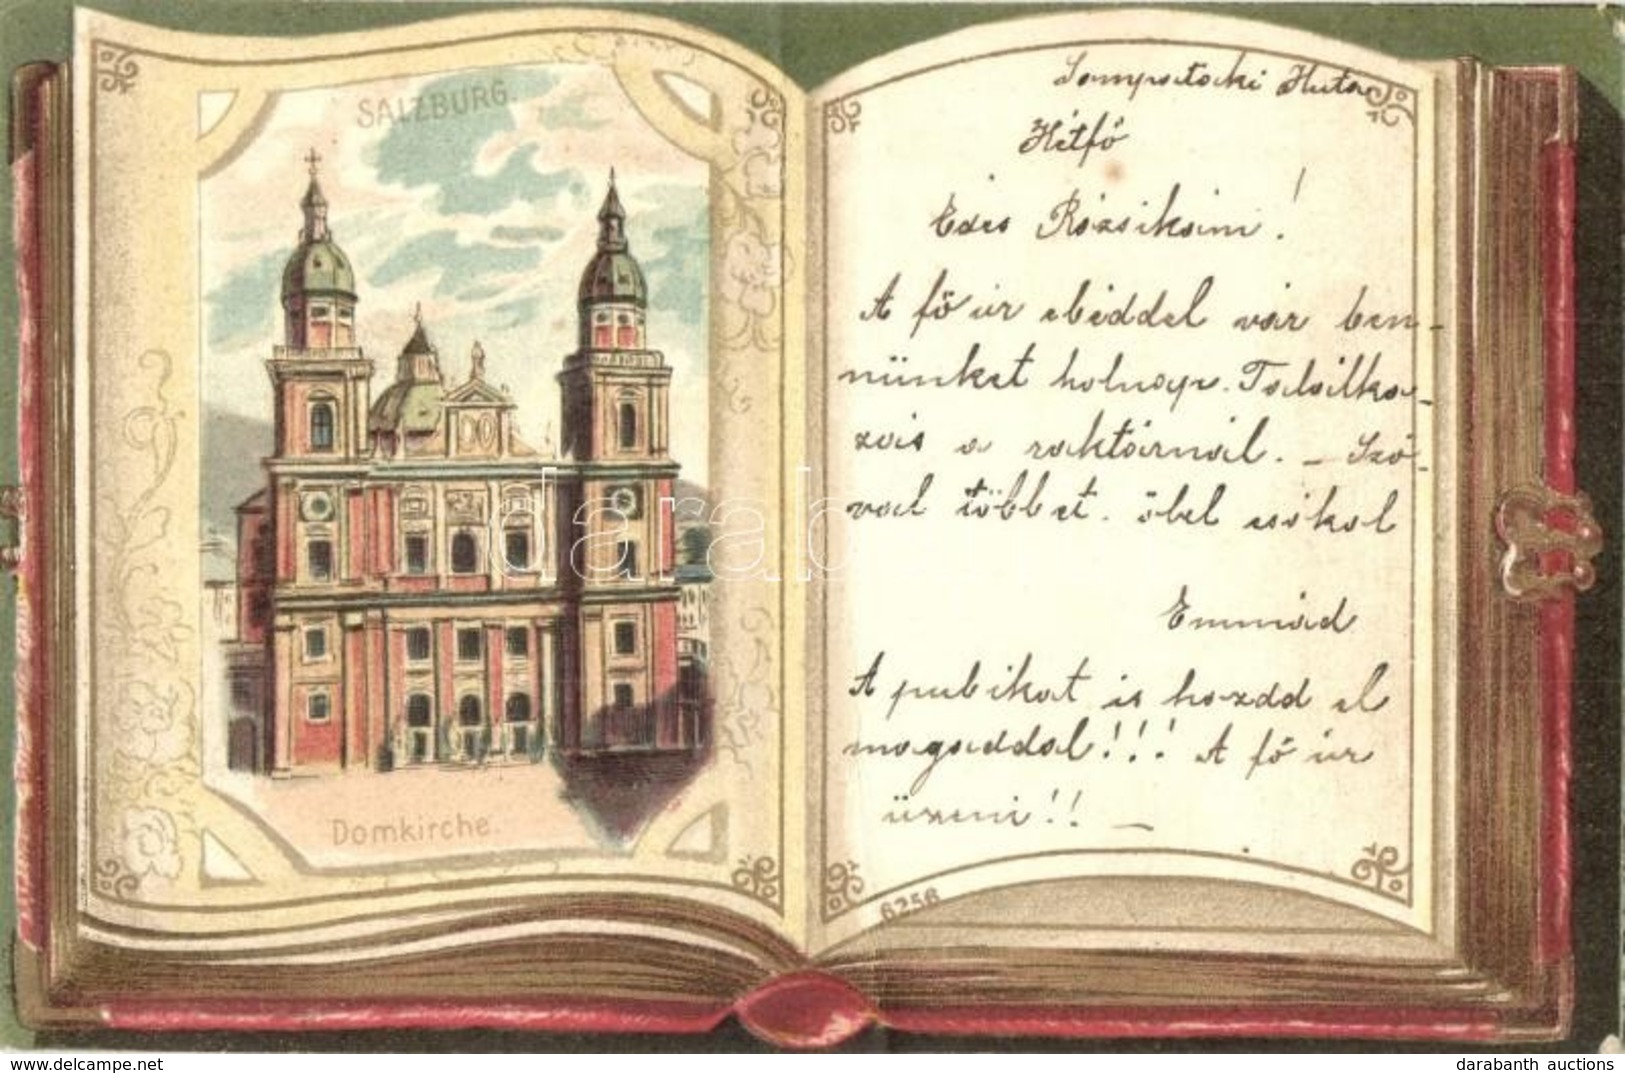 SALZBURG.
Domkirche.
Hétfő
Édes Rózsikám!
A fő úr ebéddel vár ben-
nünket holnap. Találko-
zás a raktárnál. – Szó-
val többet. ölel csókol
Emmád
A pubikat is hozdd el
magaddal!!! A fő úr
üzeni!! –
6256
darabanth
darabanth auctions